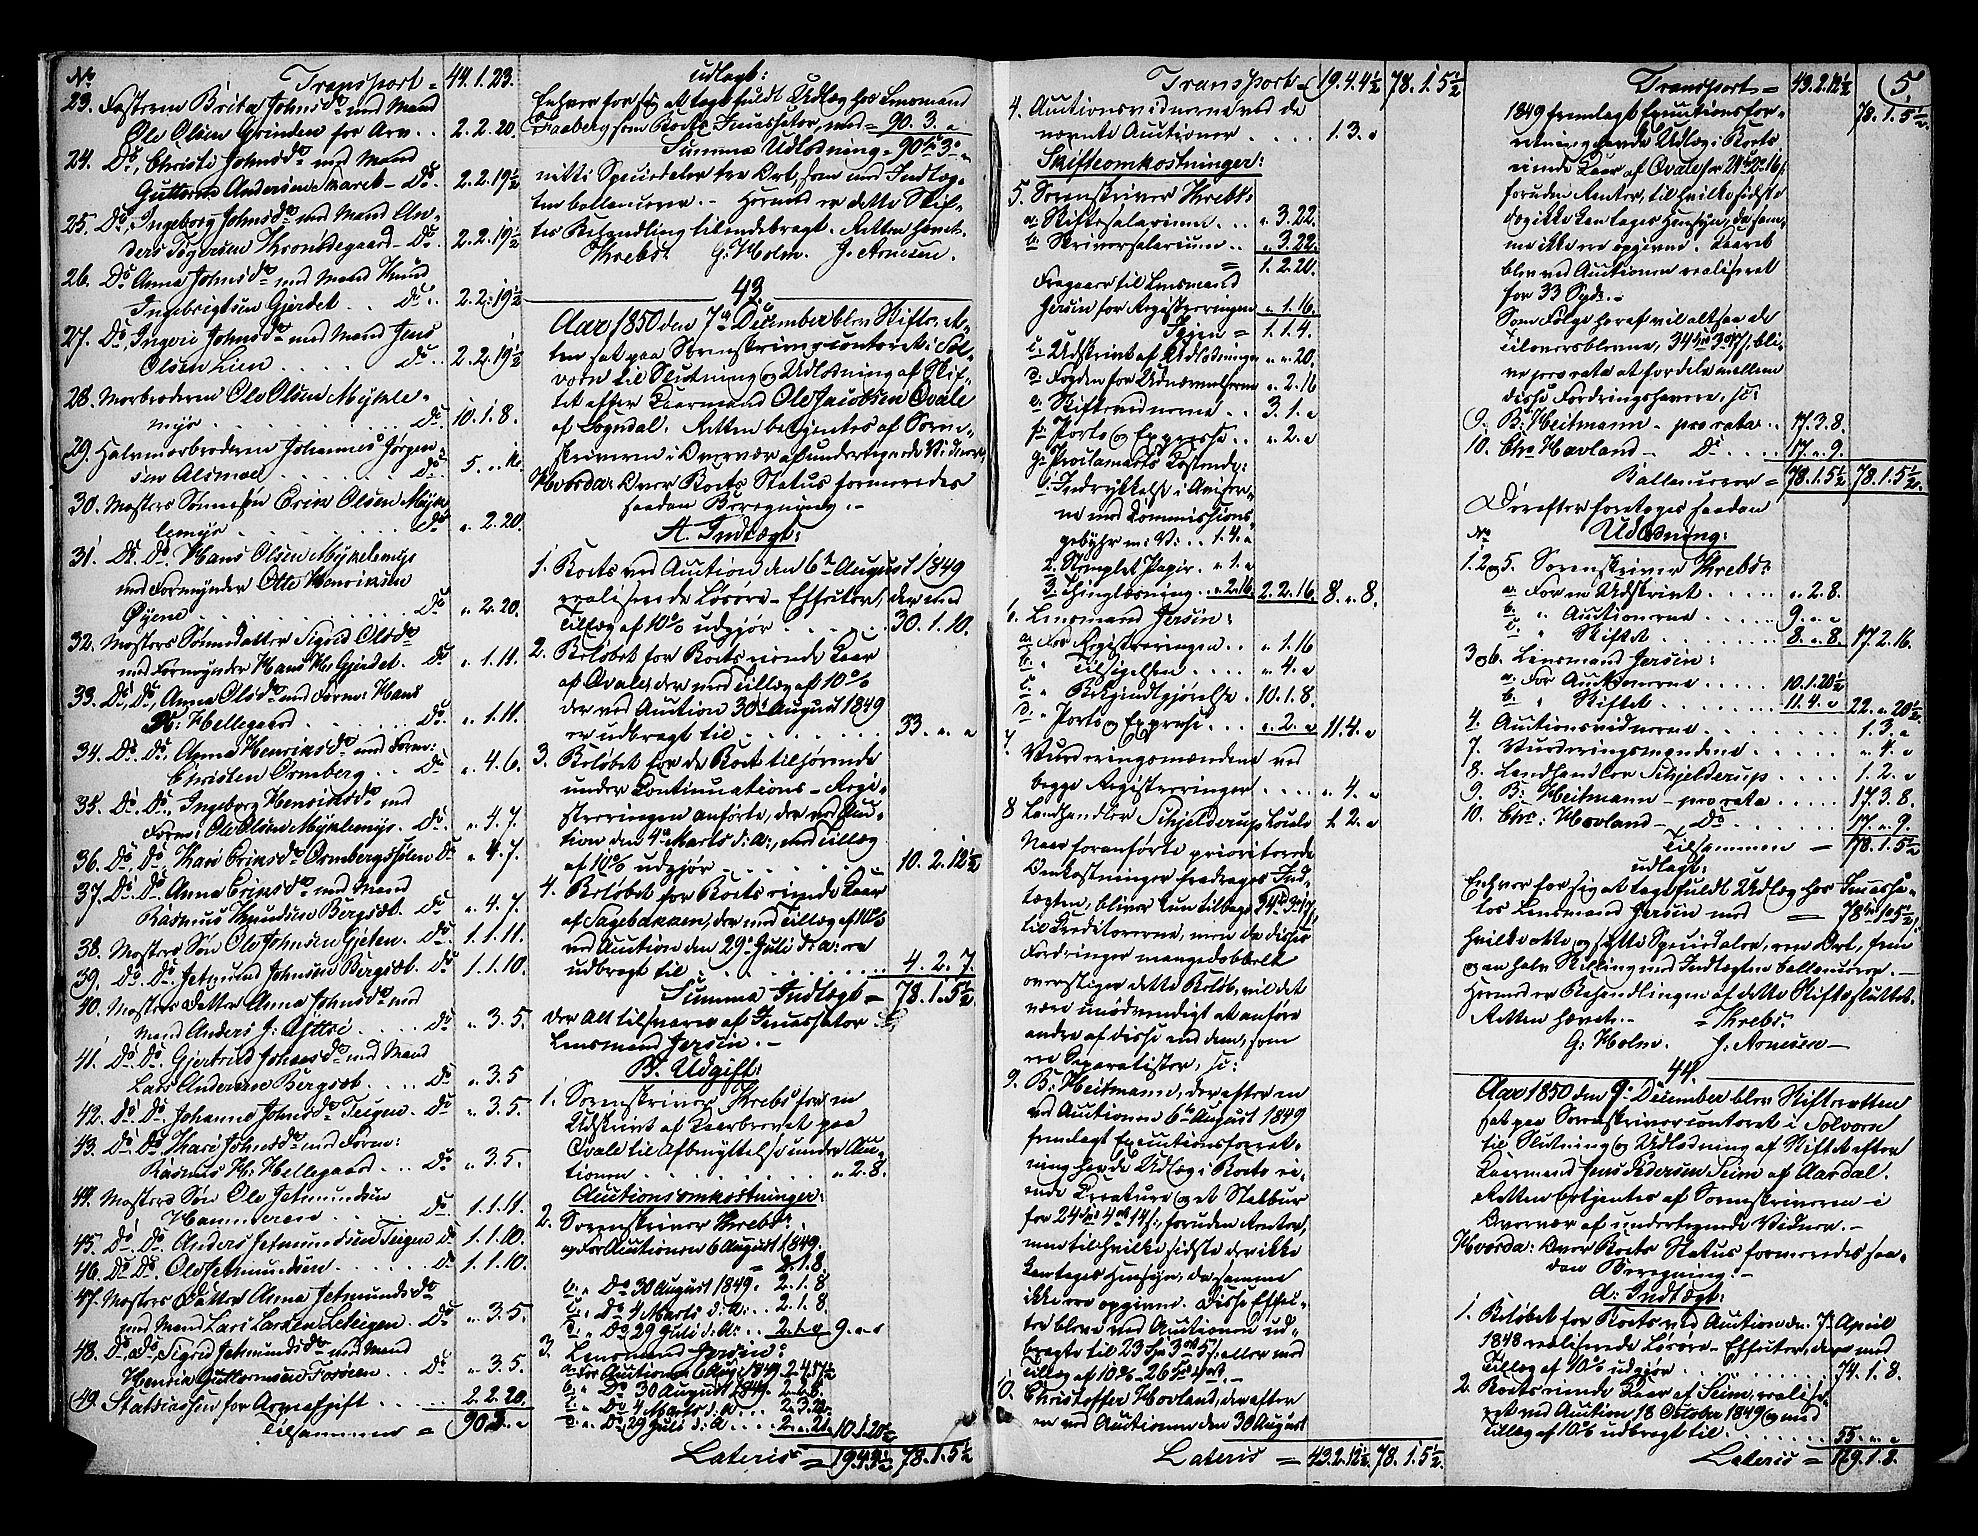 No Transport = 44.1.23.
23. Fasteren Brita Johnsdr med Mand
Ole Olsen Grinden for Arv . . 2.2.20.
24. Do, Christi Johnsdr med Mand
Guttorm Andersen Skaret - Do. 2.2.19½
25. Do, Ingeborg Johnsdr med Mand An-
ders Togersen Kronsdegaard - Do. 2.2.19½
26. Do Anna Johnsdr med Mand Knud
Ingebrigtsen Gjerdet . . Do. 2.2.19½
27. Do Ingeri Johnsdr med Mand Jens
Olsen Lien . . . . . Do. 2.2.19½
28. Morbroderen Ole Olsen Mykle-
myr . . . . . Do. 10.1.8.
29. Halvmorbroderen Johannes Jørgen-
sen Alsmoe . . . . . Do. 5. „ 16.
30. Mosters Sønnesøn Erik Olsen Mykle-
lemyr . . . . . Do „ 2.20.
31. Do. Do. Hans Olsen Myklemyr
med Formynder Otte Henriksen
Øyene . . . . . Do „ 2.20.
32. Mosters Sønnedatter Sigrid Olsdr
med Formynder Hans H. Gjerdet. Do „ 1.11.
33. Do, Do, Anna Olsdr med Form: Hans
H: Hellegaard . . . . . Do. „ 1.11.
34. Do. Do. Anna Henriksdr med Form:
Christen Ormberg . . Do „ 4.6.
35. Do. Do. Ingeborg Henriksdr med
Form: Ole Olsen Myklemyr. Do. „ 4.7.
36. Do, Do, Kari Eriksdr Ormbergstølen Do „ 4.7.
37. Do. Do. Anna Eriksdr med Mand
Rasmus Knudsen Bergset. Do „ 4.7.
38. Mosters Søn Ole Johnsen Gjeten. Do. 1.1.11.
39. Do. Do. Jetmund Johnsen Bergset. Do 1.1.10.
40. Mosters Datter Anna Johnsdr med
Mand Anders J. . . . . Do „ 3.5.
41. Do. Do. Gjertrud Johnsdr med Mand
Lars Andersen Bergset. . . . Do „ 3.5
42. Do. Do. Johanna Johnsdr Teigen. Do „ 3.5.
43. Do. Do. Kari Johnsdr med Form:
Rasmus H. Hellegaard. . . Do „ 3.5.
44. Mosters Søn Ole Jetmundsen
Hammeren . . . . . Do. 1.1.11.
45. Do. Do. Anders Jetmundsen Teigen do 1.1.10.
46. Do. Do. Ole Jetmundsen . . . . . do 1.1.10.
47. Mosters Datter Anna Jetmundsdr
med Mand Lars Larsen Leteigen. Do „ 3.5.
48. Do, Do, Sigrid Jetmundsdr med Mand
Henrik Guttormsen Forøren . . Do „ 3.5.
49. Statskassen for Arveafgift . . . . 2.2.20.
Tilsammen = 90.3. „
udlagt:
Enhver for sig at tage fuldt Udlæg hos Lensmand
Faaberg som Boets Incassator, med = 90. 3. „
Summa Udlodning = 90 Sp 3 „
nitti Speciedaler tre Ort, som med Indtæg-
ten ballancerer. - Hermed er dette Skif-
tes Behandling tilendebragt. Retten hævet.
Krebs. G. Holm. J. Arnesen.
43.
Aar 1850 den 7de December blev Skifteret-
ten sat paa Sorenskrivercontoret i Sol-
vorn til Slutning og Udlodning af Skif-
tet efter Kaarmand Ole Jacobsen Ovale
af Sogndal. Retten betjentes af Soren-
skriveren i Overvær af undertegnede Vidner.
Hvorda: Over Boets Status formeredes
saadan Beregning: -
A. Indtægt:
1. Boets ved Auction den 6te August 1849
realiserede Løsøre - Effecter, der med
Tillæg af 10% udgjør . . . . . 30.1.10.
2. Beløbet for Boets eiende Kaar
af Ovale, der med Tillæg af 10%
der ved Auction 30te August 1849
er udbragt til . . . . . 33. „ „
3. Beløbet for de Boet tilhørende
under Continuations - Regi-
streringen anførte, der ved Auc-
tion den 4de Marts d: A:, med Tillæg
af 10% udgjør . . . . . 10. 2. 12½
4. Beløbet for Boets eiende Kaar
af Sagebakken, der med Tillæg af 10%
ved Auction den 29de Juli d: A: er
udbragt til . . . . . 4. 2. 7.
Summa Indtægt = 78. 1. 5½
der Alt tilsvares af Incassator
Lensmand Jersin. -
B. Udgift:
1. Sorenskriver Krebs for en
Udskrivt af Kaarbrevet paa
Ovale til Afbenyttelse under Auc-
tionen . . . . . „ 2.8.
Auctionsomkostninger:
2. Sorenskriver Krebs:
a. For Auctionen 6 August 1849.
= 2.1.8.
b. „ Do 30 August 1849. 2.1.8.
c. „ Do 4 Marts d: A: . . 2.1.8.
d. „ Do 29 Juli d: A: . . 2.1.„ 9. „ „
3. Lensmand Jersin:
a. For Auctionen 6 Aug: 1849
b. „ Do 30 August 1849.
c. „ Do 4 Marts d: A: . . 2.3.20.
d. „ Do 29 Juli d: A: . . 10.1.20½
Lateris = 19.4.4½ 78.1.5½
Transport = 19.4.4½ 78.1.5½
4. Auctionsvidnerne ved de
nævnte Auctioner . . . . 1.3. „
Skifteomkostninger:
5. Sorenskriver Krebs:
a. Skiftesalarium . . . „ 3.22.
b. Skriversalarium . . „ 3.22.
= 1.2.20.
Fragaaer til Lensmand
Jersin for Registreringen „ 1.16.
Igjen = 1.1.4.
c. Udskrivt af Udlodningen „ „ 20.
d. Fogden for Udnævnelserne „ 2.16
e. Skiftevidnerne . . 3.1. „
f. Porto og Expresse . . „ 2. „
g. Proclamaets Kostende:
1. Indrykkelse i Aviser-
ne med Commissions-
gebyhr m: V: . . 1.4. „
2. Stemplet Papir. . „ 1. „
3. Thinglæsning . . „ 2.16 2.2.16. 8. „ 8.
6. Lensmand Jersin:
a. For Registreringen . . „ 1.16
b. „ Tilsigelsen . . . . „ 4. „
c. „ Bekjendtgjørelse . 10.1.8.
d. „ Porto og Expresse . . . „ 2. „ 11.4. „
7. Vurderingsmændene ved
begge Registreringer . . . . „ 4. „
8 Landhandler Schjelderup 1. 2. „
Naar foranførte prioriterede
Omkostninger fradrages Ind-
tægten, bliver kun tilbage 34 Sp 3 Ort 17 s
til Creditorerne, men da disses
Fordringer mangedobbelt
overstiger dette Beløb, vil det
være unødvendigt at anføre
andre af disse end dem, som
ere Separatister, sc:
9. B: Heitmann, der efter en
ved Auctionen 6te August 1849
fremlagt Executionsforret-
ning havde Udlæg i Boets ei-
ende Creature og et Stabbur
for 24 Sp 4 mk 14 s, foruden Renter,
men til hvilke sidste der ikke
kan tages Hensyn, da samme
ikke ere opgivne. Disse Effec-
ter bleve ved Auctionen ud-
bragte til 23 Sp 3 mk 5 s: eller med
Tillæg af 10% - 26 Sp „ 4 s. -
10. Christoffer Hovland, der efter
en ved Auctionen den 30 August
Lateris = 43.2.12½ 78.1.5½
Transport = 43.2.12½ 5.
78.1.5½
1849 fremlagt Executionsfor-
retning havde Udlæg i Boets
eiende Kaar af Ovale for
foruden Renter, til hvilke sidste
dog ikke kan tages Hensyn, da sam-
me ikke ere opgivne. Kaaret
blev ved Auctionen realiseret
for 33 Spd. -
Som Følge heraf vil altsaa de
tiloversblevne, 34 Sp 3 Ort 17 s: bli-
ve pro rata at fordele mellem
disse Fordringshavere, sc:
9. B: Heitmann - pro rata . . 17.3.8.
10. Chr: Hovland - Do . . . . 17. „ 9.
Ballancerer = 78.1.5½ 78.1.5½
Derefter foretoges saadan
No Udlodning:
1.2 & 5. Sorenskriver Krebs:
a. For en Udskrivt . . . . . „ 2.8.
b. „ Auctionerne . . . . 9. „ „
c. „ Skiftet . . . . . 8. „ 8. 17.2.16.
3 & 6. Lensmand Jersin:
a. For Auctionerne . . . . . 10.1.20½
b. „ Skiftet . . . . . 11.4. „ 22. „ 20½
4. Auctionsvidnerne . . . . . 1.3. „
7. Vurderingsmændene . . . . . „ 4. „
8. Landhandler Schjelderup . . . . 1.2. „
9. B: Heitmann - pro rata . . . . . 17.3.8.
10. Chr: Hovland - Do . . . . . 17. „ 9.
Tilsammen = 78.1.5½
udlagt:
Enhver for sig at tage fuldt Udlæg hos Incassa-
tor Lensmand Jersin med = 78 Sp 1 Ort 5½ s:
hvilke otte og sytti Speciedaler, een Ort, fem
og en halv Skilling med Indtægten ballancerer. -
Hermed er Behandlingen af dette Skifte sluttet.
Retten hævet. - Krebs:
G: Holm. J: Arnesen -
44.
Aar 1850 den 9de December blev Skifteretten
sat paa Sorenskrivercontoret i Solvorn
til Slutning og Udlodning af Skiftet efter
Kaarmand Jens Pedersen Seim af Aardal.
Retten betjentes af Sorenskriveren i
Overvær af undertegnede Vidner. -
Hvorda: Over Boets Status formeredes saa-
dan Beregning: -
A: Indtægt:
1. Beløbet for Boets ved Auction den 7de April
1848 realiserede Løsøre - Effecter, der med
Tillæg af 10% udgjør . . . . . 74.1.8.
2. Boets eiende Kaar af Seim, realise-
ret ved Auction 18 October 1849 og med
Tillæg af 10% udbragt til . . . . . 55. „ „
Lateris = 129.1.8.